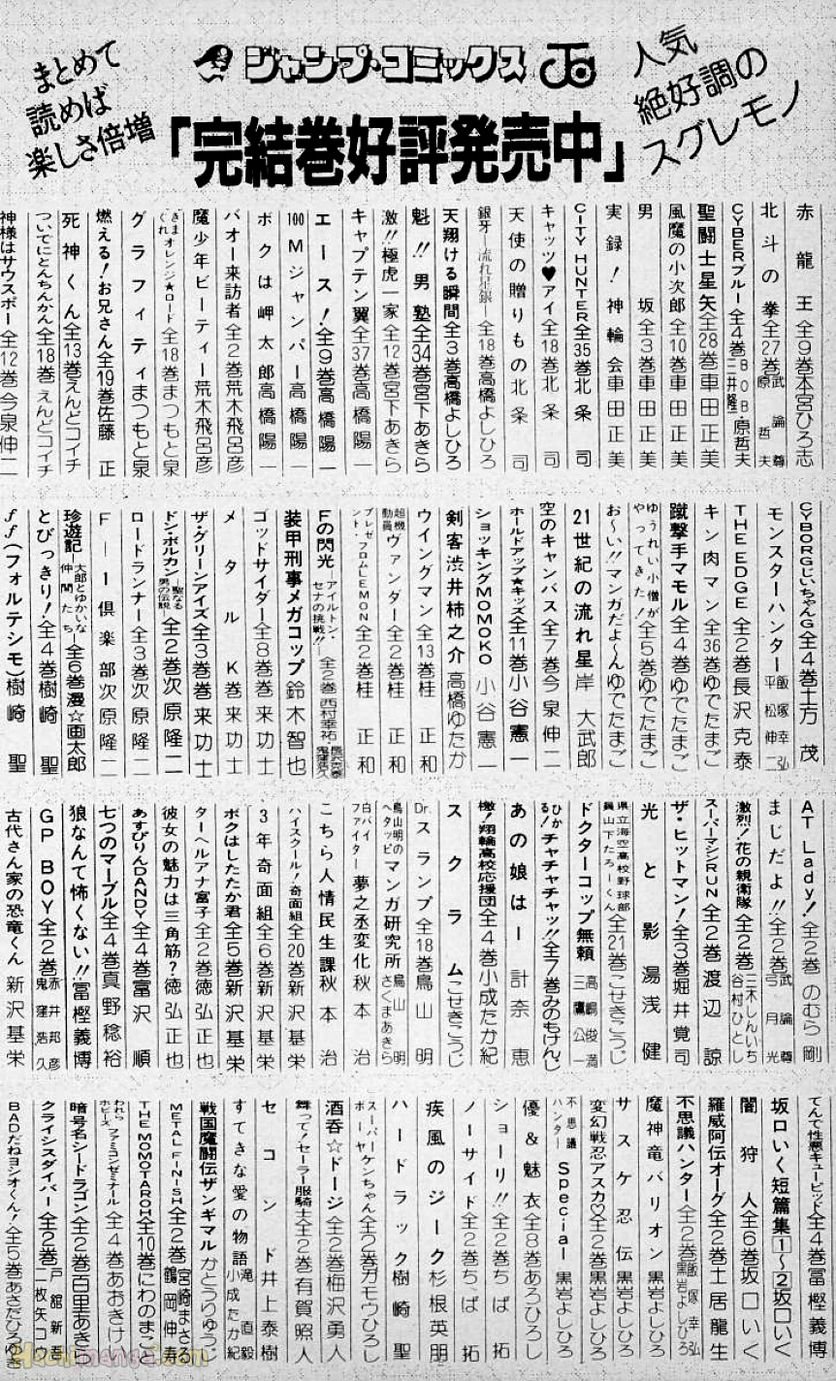 まとめて
読めば
楽しさ倍増
ジャンプ・コミックス
人気
絶好調の
スグレモノ
「完結巻好評発売中」
赤龍王全9巻本宮ひろ志
北斗の拳全27巻武論尊 原哲夫
CYBERブルー全4巻BOB・原哲夫 三井隆一
聖闘士星矢全28巻車田正美
風魔の小次郎全10巻車田正美
男坂全3巻車田正美
実録！神輪会車田正美
CITY HUNTER全35巻北条司
キャッツ♥アイ全18巻北条司
天使の贈りもの北条司
銀牙―流れ星銀―全18巻高橋よしひろ
天翔ける瞬間全3巻高橋よしひろ
魁!!男塾全34巻宮下あきら
激!!極虎一家全12巻宮下あきら
キャプテン翼全37巻高橋陽一
エース！全9巻高橋陽一
100Mジャンパー高橋陽一
ボクは岬太郎高橋陽一
バオー来訪者全2巻荒木飛呂彦
魔少年ビーティー荒木飛呂彦
きまぐれオレンジ★ロード全18巻まつもと泉
グラフィティまつもと泉
燃える！お兄さん全19巻佐藤正
死神くん全13巻えんどコイチ
ついでにとんちんかん全18巻えんどコイチ
神様はサウスポー全12巻今泉伸二
CYBORGじいちゃんG全4巻土方茂
モンスターハンター飯塚幸弘 平松伸二
THE EDGE全2巻長沢克泰
キン肉マン全36巻ゆでたまご
蹴撃手マモル全4巻ゆでたまご
ゆうれい小僧がやってきた！全5巻ゆでたまご
お〜い!!マンガだよ〜んゆでたまご
21世紀の流れ星岸大武郎
空のキャンバス全7巻今泉伸二
ホールドアップ★キッズ全11巻小谷憲一
ショッキングMOMOKO小谷憲一
剣客渋井柿之介高橋ゆたか
ウイングマン全13巻桂正和
超機動員ヴァンダー全2巻桂正和
プレゼント・フロムLEMON全2巻桂正和
Fの閃光―アイルトン・セナの挑戦!!―全2巻西村幸祐
装甲刑事メガコップ鈴木智也
ゴッドサイダー全8巻巻来功士
メタルK巻来功士
ザ・グリーンアイズ全3巻巻来功士
ドン・ボルカン―聖なる男の伝説―全2巻次原隆二
ロードランナー全3巻次原隆二
F―1倶楽部次原隆二
珍遊記―太郎とゆかいな仲間たち―全6巻漫☆画太郎
とびっきり！全4巻樹崎聖
ff(フォルテシモ)樹崎聖
AT Lady！全2巻のむら剛
まじだよ!!全2巻武論尊 弓月光
激烈！花の親衛隊全2巻三木しんいち 谷村ひとし
スーパーマシンRUN全2巻渡辺諒
ザ・ヒットマン！全3巻堀井覚司
光と影湯浅健
県立海空高校野球部員山下たろーくん全21巻こせきこうじ
ドクターコップ無頼高嶋俊満 三鷹公一
ひかる！チャチャチャッ!!全7巻みのもけんじ
あの娘は―計奈恵
檄！翔輪高校応援団全4巻小成たか紀
スクラムこせきこうじ
Dr.スランプ全18巻鳥山明
鳥山明のヘタッピマンガ研究所鳥山明 さくまあきら
白バイファイター夢之丞変化秋本治
こちら人情民生課秋本治
ハイスクール！奇面組全20巻新沢基栄
3年奇面組全6巻新沢基栄
ボクはしたたか君全5巻新沢基栄
ターヘルアナ富子全2巻徳弘正也
彼女の魅力は三角筋？徳弘正也
あすぴりんDANDY全4巻富沢順
七つのマーブル全4巻真野稔裕
狼なんて怖くない!!冨樫義博
GP BOY全2巻赤井邦彦 鬼窪浩久
古代さん家の恐竜くん新沢基栄
てんで性悪キューピッド全4巻冨樫義博
坂口いく短篇集1〜2坂口いく
闇狩人全6巻坂口いく
羅威阿伝オーグ全2巻土居龍生
不思議ハンター全2巻飯塚幸弘 黒岩よしひろ
魔神竜バリオン黒岩よしひろ
サスケ忍伝黒岩よしひろ
変幻戦忍アスカ♡全2巻黒岩よしひろ
不思議ハンターSpecial黒岩よしひろ
優&魅衣全8巻あろひろし
ショーリ!!全2巻ちば拓
ノーサイド全2巻ちば拓
疾風のジーク杉根英朋
ハードラック樹崎聖
スーパーボーヤーケンちゃん全2巻ガモウひろし
酒呑☆ドージ全2巻梅沢勇人
舞って！セーラー服騎士全2巻有賀照人
セコンド井上泰樹
すてきな愛の物語滝直毅 小成たか紀
戦国魔闘伝ザンギマルかとうりゅうじ
METAL FINISH全2巻宮崎まさる 鶴岡伸寿
THE MOMOTAROH全10巻にわのまこと
われらホビーズファミコンゼミナール全4巻あおきけい
暗号名シードラゴン全2巻百里あきら
クライシスダイバー全2巻戸舘新吾 二枚矢コウ
BADだねヨシオくん！全5巻あさだひろゆき